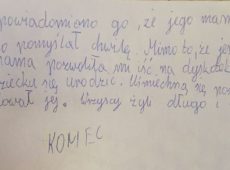 powiadomiono go, że jego mam
pomyślał chwilę. Mimo to, że je
mama pozwoliła mi iść na dyskotek
dziecku się urodzić. Uśmiechną się po
ował jej. Wszyscy żyli długo i
KONIEC